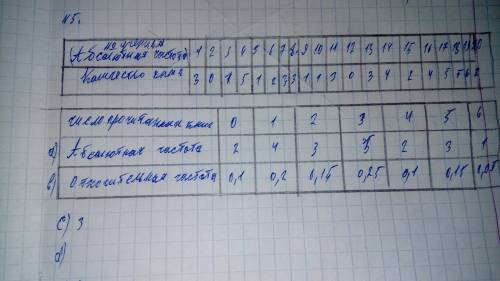 №5.
№ ученика 1 2 3 4 5 6 7 8 9 10 11 12 13 14 15 16 17 18 19 20
(Абсолютная частота)
Количество книг 3 0 1 5 1 2 3 3 1 1 3 0 3 4 2 4 5 5 6 2
число прочитанных книг 0 1 2 3 4 5 6
а) Абсолютная частота 2 4 3 5 2 3 1
в) Относительная частота 0,1 0,2 0,15 0,25 0,1 0,15 0,05
с) 3
d)